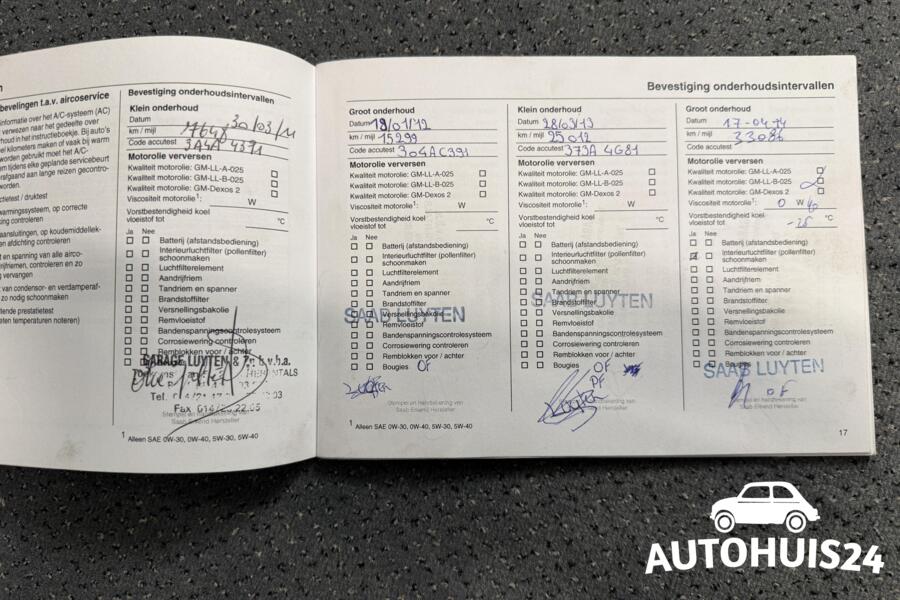 bevelingen t.a.v. aircoservice
informatie over het A/C-systeem (AC)
verwezen naar het gedeelte over
houd in het instructieboekje. Bij auto's
el kilometers maken of vaak bij warm
worden gebruikt moet het A/C-
em tijdens elke geplande servicebeurt
rafgaand aan lange reizen gecontro-
worden.
ctietest / druktest
warmingssysteem, op correcte
ing controleren
aansluitingen, op koudemiddellek-
n afdichting controleren
t en spanning van alle airco-
rijfriemen, controleren en zo
g vervangen
van condensor- en verdamperaf-
zo nodig schoonmaken
tende prestatietest
eten temperaturen noteren)
Bevestiging onderhoudsintervallen
Klein onderhoud
Datum 30/03/11
km / mijl 7648
Code accutest 3A4A 4371
Motorolie verversen
Kwaliteit motorolie: GM-LL-A-025
Kwaliteit motorolie: GM-LL-B-025
Kwaliteit motorolie: GM-Dexos 2
Viscositeit motorolie1: W
Vorstbestendigheid koel
vloeistof tot °C
Ja Nee
Batterij (afstandsbediening)
Interieurluchtfilter (pollenfilter)
schoonmaken
Luchtfilterelement
Aandrijfriem
Tandriem en spanner
Brandstoffilter
Versnellingsbakolie
Remvloeistof
Bandenspanningscontrolesysteem
Corrosiewering controleren
Remblokken voor / achter
GARAGE LUYTEN & Zn b.v.b.a.
Fax 014/22.22.05
Stempel en handtekening van
Saab Erkend Hersteller
1 Alleen SAE 0W-30, 0W-40, 5W-30, 5W-40
Bevestiging onderhoudsintervallen
Groot onderhoud
Datum 19/01/12
km / mijl 15299
Code accutest 304AC391
Motorolie verversen
Kwaliteit motorolie: GM-LL-A-025
Kwaliteit motorolie: GM-LL-B-025
Kwaliteit motorolie: GM-Dexos 2
Viscositeit motorolie1: W
Vorstbestendigheid koel
vloeistof tot °C
Ja Nee
Batterij (afstandsbediening)
Interieurluchtfilter (pollenfilter)
schoonmaken
Luchtfilterelement
Aandrijfriem
Tandriem en spanner
Brandstoffilter
Versnellingsbakolie
SAAB LUYTEN
Remvloeistof
Bandenspanningscontrolesysteem
Corrosiewering controleren
Remblokken voor / achter
Bougies OF
Luyten
Stempel en handtekening van
Saab Erkend Hersteller
1 Alleen SAE 0W-30, 0W-40, 5W-30, 5W-40
Klein onderhoud
Datum 28/03/13
km / mijl 25012
Code accutest 373A 4G81
Motorolie verversen
Kwaliteit motorolie: GM-LL-A-025
Kwaliteit motorolie: GM-LL-B-025
Kwaliteit motorolie: GM-Dexos 2
Viscositeit motorolie1: W
Vorstbestendigheid koel
vloeistof tot °C
Ja Nee
Batterij (afstandsbediening)
Interieurluchtfilter (pollenfilter)
schoonmaken
Luchtfilterelement
Aandrijfriem
Tandriem en spanner
SAAB LUYTEN
Brandstoffilter
Versnellingsbakolie
Remvloeistof
Bandenspanningscontrolesysteem
Corrosiewering controleren
Remblokken voor / achter
Bougies OF
PF
Luyten
Stempel en handtekening van
Saab Erkend Hersteller
Groot onderhoud
Datum 17-04-14
km / mijl 33086
Code accutest
Motorolie verversen
Kwaliteit motorolie: GM-LL-A-025
Kwaliteit motorolie: GM-LL-B-025
Kwaliteit motorolie: GM-Dexos 2
Viscositeit motorolie1: 0 W 40
Vorstbestendigheid koel
vloeistof tot -25 °C
Ja Nee
Batterij (afstandsbediening)
Interieurluchtfilter (pollenfilter)
schoonmaken
Luchtfilterelement
Aandrijfriem
Tandriem en spanner
Brandstoffilter
Versnellingsbakolie
Remvloeistof
Bandenspanningscontrolesysteem
Corrosiewering controleren
Remblokken voor / achter
Bougies
SAAB LUYTEN
OF
Stempel en handtekening van
Saab Erkend Hersteller
17
AUTOHUIS24